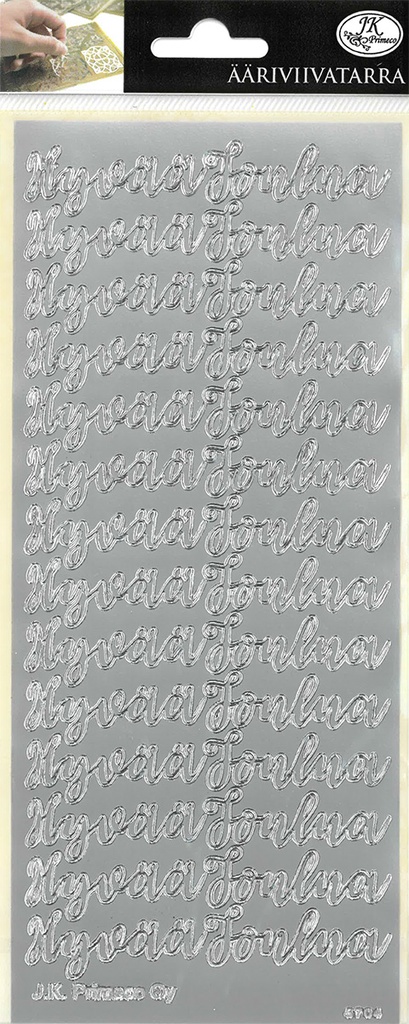 JK
Primeco
ÄÄRIVIIVATARRA
Hyvää Joulua
Hyvää Joulua
Hyvää Joulua
Hyvää Joulua
Hyvää Joulua
Hyvää Joulua
Hyvää Joulua
Hyvää Joulua
Hyvää Joulua
Hyvää Joulua
Hyvää Joulua
Hyvää Joulua
Hyvää Joulua
Hyvää Joulua
J.K. Primeco Oy